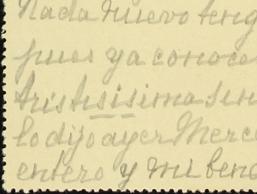 Nada nuevo teng
pues ya conoce
tristísisima sin
lo dijo ayer Merce
entero y mi bend